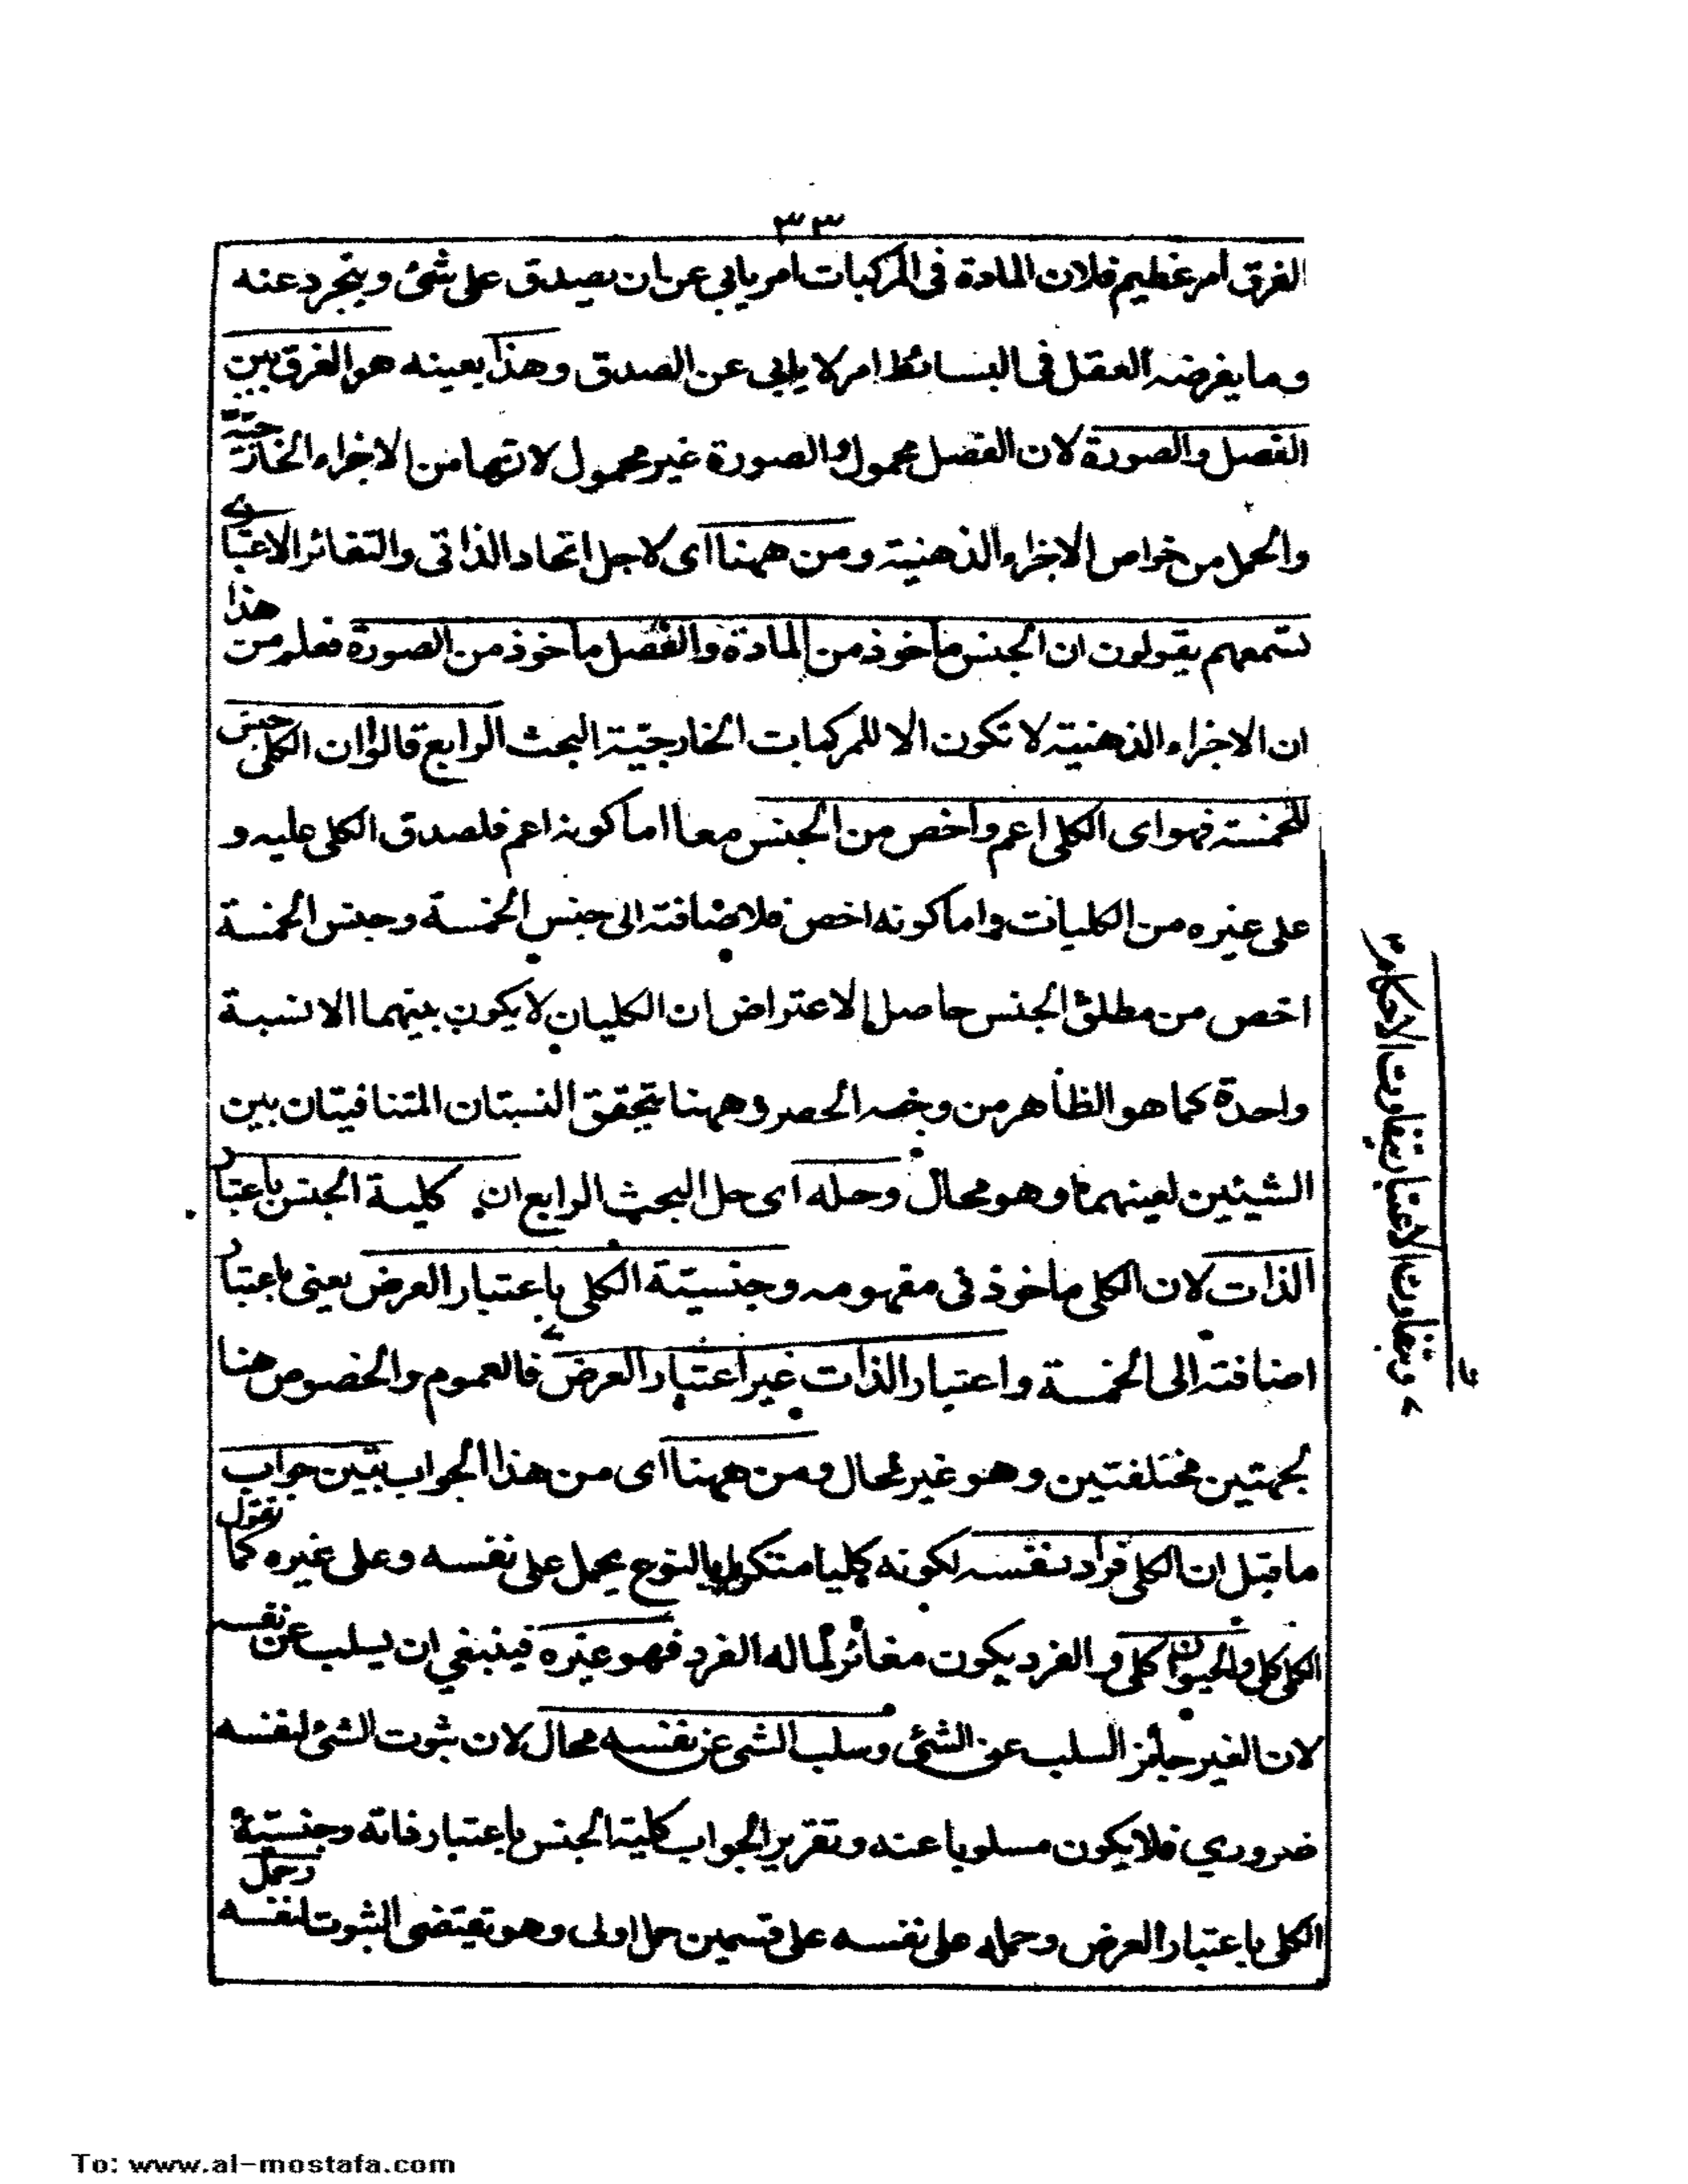 ٣٣
الفرق امر عظيم فلان المادة فى المركبات امر يابى عن ان يصدق على شئ ويتجرد عنه
وما يفرضه العقل فى البسائط امر لا يابى عن الصدق وهذا بعينه هو الفرق بين
الفصل والصورة لان الفصل محمول والصورة غير محمول لانها من الاجزاء الخارجية
والحمل من خواص الاجزاء الذهنية ومن ههنا اى لاجل اتحاد الذاتى والتغائر الاعتبارى
تسمعهم يقولون ان الجنس ماخوذ من المادة والفصل ماخوذ من الصورة فعلم من هذا
ان الاجزاء الذهنية لا تكون الا للمركبات الخارجية البحث الرابع قالوا ان الكلى جنس
للخمسة فهو اى الكلى اعم واخص من الجنس معا اما كونه اعم فلصدق الكلى عليه و
على غيره من الكليات واما كونه اخص فلاضافته الى جنس الخمسة وجنس الخمسة
اخص من مطلق الجنس حاصل الاعتراض ان الكليان لا يكون بينهما الا نسبة
واحدة كما هو الظاهر من وجه الحصر وههنا يتحقق النسبتان المتنافيتان بين
الشيئين لعينهما وهو محال وحله اى حل البحث الرابع ان كلية الجنس باعتبار
الذات لان الكلى ماخوذ فى مفهومه وجنسية الكلى باعتبار العرض يعنى باعتبار
اضافته الى الخمسة واعتبار الذات غير اعتبار العرض فالعموم والخصوص هنا
بجهتين مختلفتين وهو غير محال ومن ههنا اى من هذا الجواب تبين جواب
ما قيل ان الكلى فرد نفسه لكونه كليا متكررا بالنوع يحمل على نفسه وعلى غيره كما نقول
الكلى كلى والحيوان كلى والفرد يكون مغائر لما له الفرد فهو غيره فينبغي ان يسلب عن نفسه
لان الغير جائز السلب عن الشئ وسلب الشئ عن نفسه محال لان ثبوت الشئ لنفسه
ضروري فلا يكون مسلوبا عنه وتقرير الجواب كلية الجنس باعتبار ذاته وجنسية
الكلى باعتبار العرض وحمله على نفسه على قسمين حمل اولى وهو يقتضى الثبوت لنفسه وحمل
وبتفاوت الاعتبار يتفاوت الاحكام
To: www.al-mostafa.com